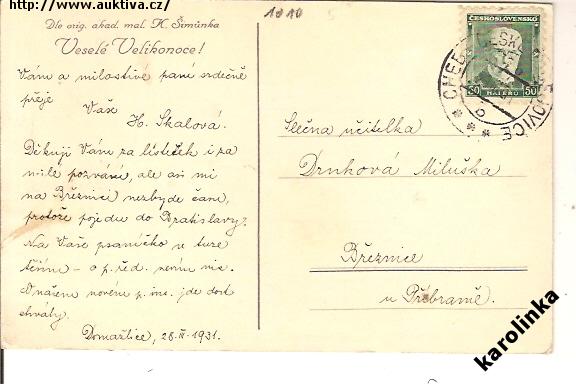 http://www.auktiva.cz/
Dle orig. akad. mal. K. Šimůnka
Veselé Velikonoce!
1010
ČESKOSLOVENSKO
50 HALÉŘŮ 50
Vám a milostivé paní srdečně
přeje
Vaše
H. Skalová.
Děkuji Vám za lísteček i za
milé pozvání, ale ani mi
na Březnici nezbyde času,
protože pojedu do Bratislavy?
Na Vaše psaníčko v
– o p. řed. nevím nic.
O našem novém p. ins. jde dost
chvály.
Domažlice, 28.III.1931.
Slečna učitelka
Drnhová Miluška
Březnice
u Příbramě.
karolinka